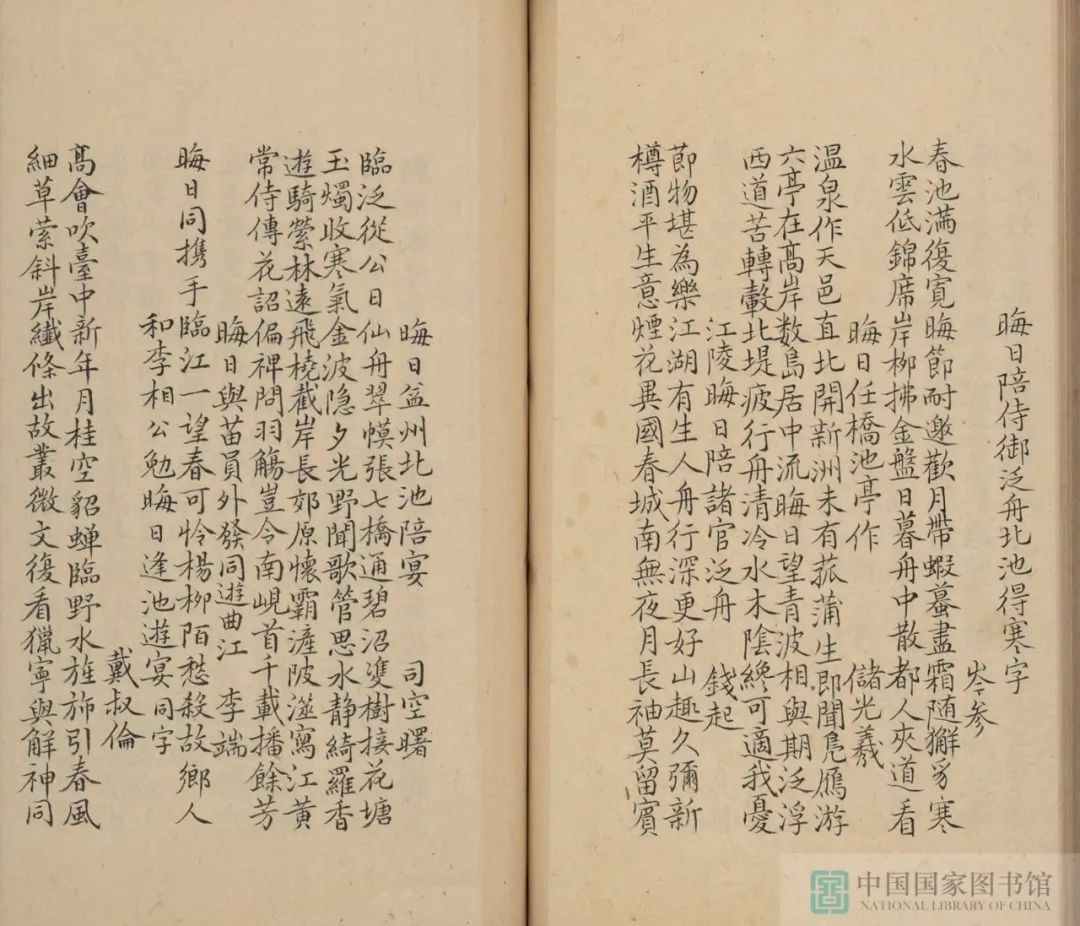 晦日陪侍御泛舟北池得寒字
岑参
春池滿復寬晦節耐邀歡月帶蝦蟇盡霜随獬豸寒
水雲低錦席岸柳拂金盤日暮舟中散都人夾道看
晦日任橋池亭作　儲光羲
温泉作天邑直北開新洲未有菰蒲生即聞凫鴈游
六亭在高岸数島居中流晦日望青波相與期泛浮
西道苦轉轂北堤疲行舟清冷水木陰纔可適我憂
江陵晦日陪諸官泛舟　錢起
節物堪為樂江湖有生人舟行深更好山趣久彌新
樽酒平生意煙花異國春城南無夜月長袖莫留賓
晦日益州北池陪宴　司空曙
臨泛從公日仙舟翠幙張七橋通碧沼雙樹接花塘
玉燭收寒氣金波隐夕光野聞歌管思水静綺羅香
遊騎縈林遠飛橈截岸長郊原懷灞滻陂溠寫江黄
常侍傳花詔偏裨問羽觴豈令南峴首千載播餘芳
晦日與苗員外發同遊曲江　李端
晦日同携手臨江一望春可怜楊柳陌愁殺故鄉人
和李相公勉晦日逢池遊宴同字
戴叔倫
高會吹臺中新年月桂空貂蟬臨野水旌斾引春風
細草縈斜岸纖條出故叢微文復看獵寧與解神同
中国国家图书馆
NATIONAL LIBRARY OF CHINA